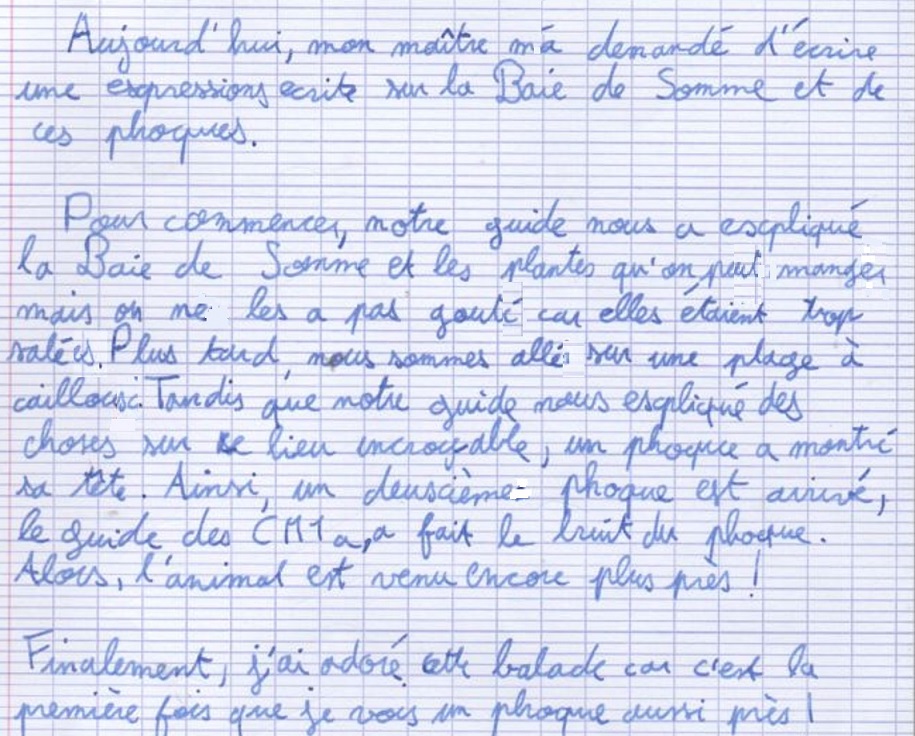 Aujourd'hui, mon maître m'a demandé d'écrire
une expressions ecrite sur la Baie de Somme et de
ces phoques.
Pour commencer, notre guide nous a expliqué
la Baie de Somme et les plantes qu'on peut manger
mais on ne les a pas gouté car elles étaient trop
salées. Plus tard, nous sommes allé sur une plage à
cailloux. Tandis que notre guide nous expliqué des
choses sur le lieu incroyable, un phoque a montré
sa tête. Ainsi, un deuxième phoque est arrivé,
le guide des CM1 a, a fait le bruit du phoque.
Alors, l'animal est venu encore plus près !
Finalement, j'ai adoré cette balade car c'est la
première fois que je vois un phoque aussi près !